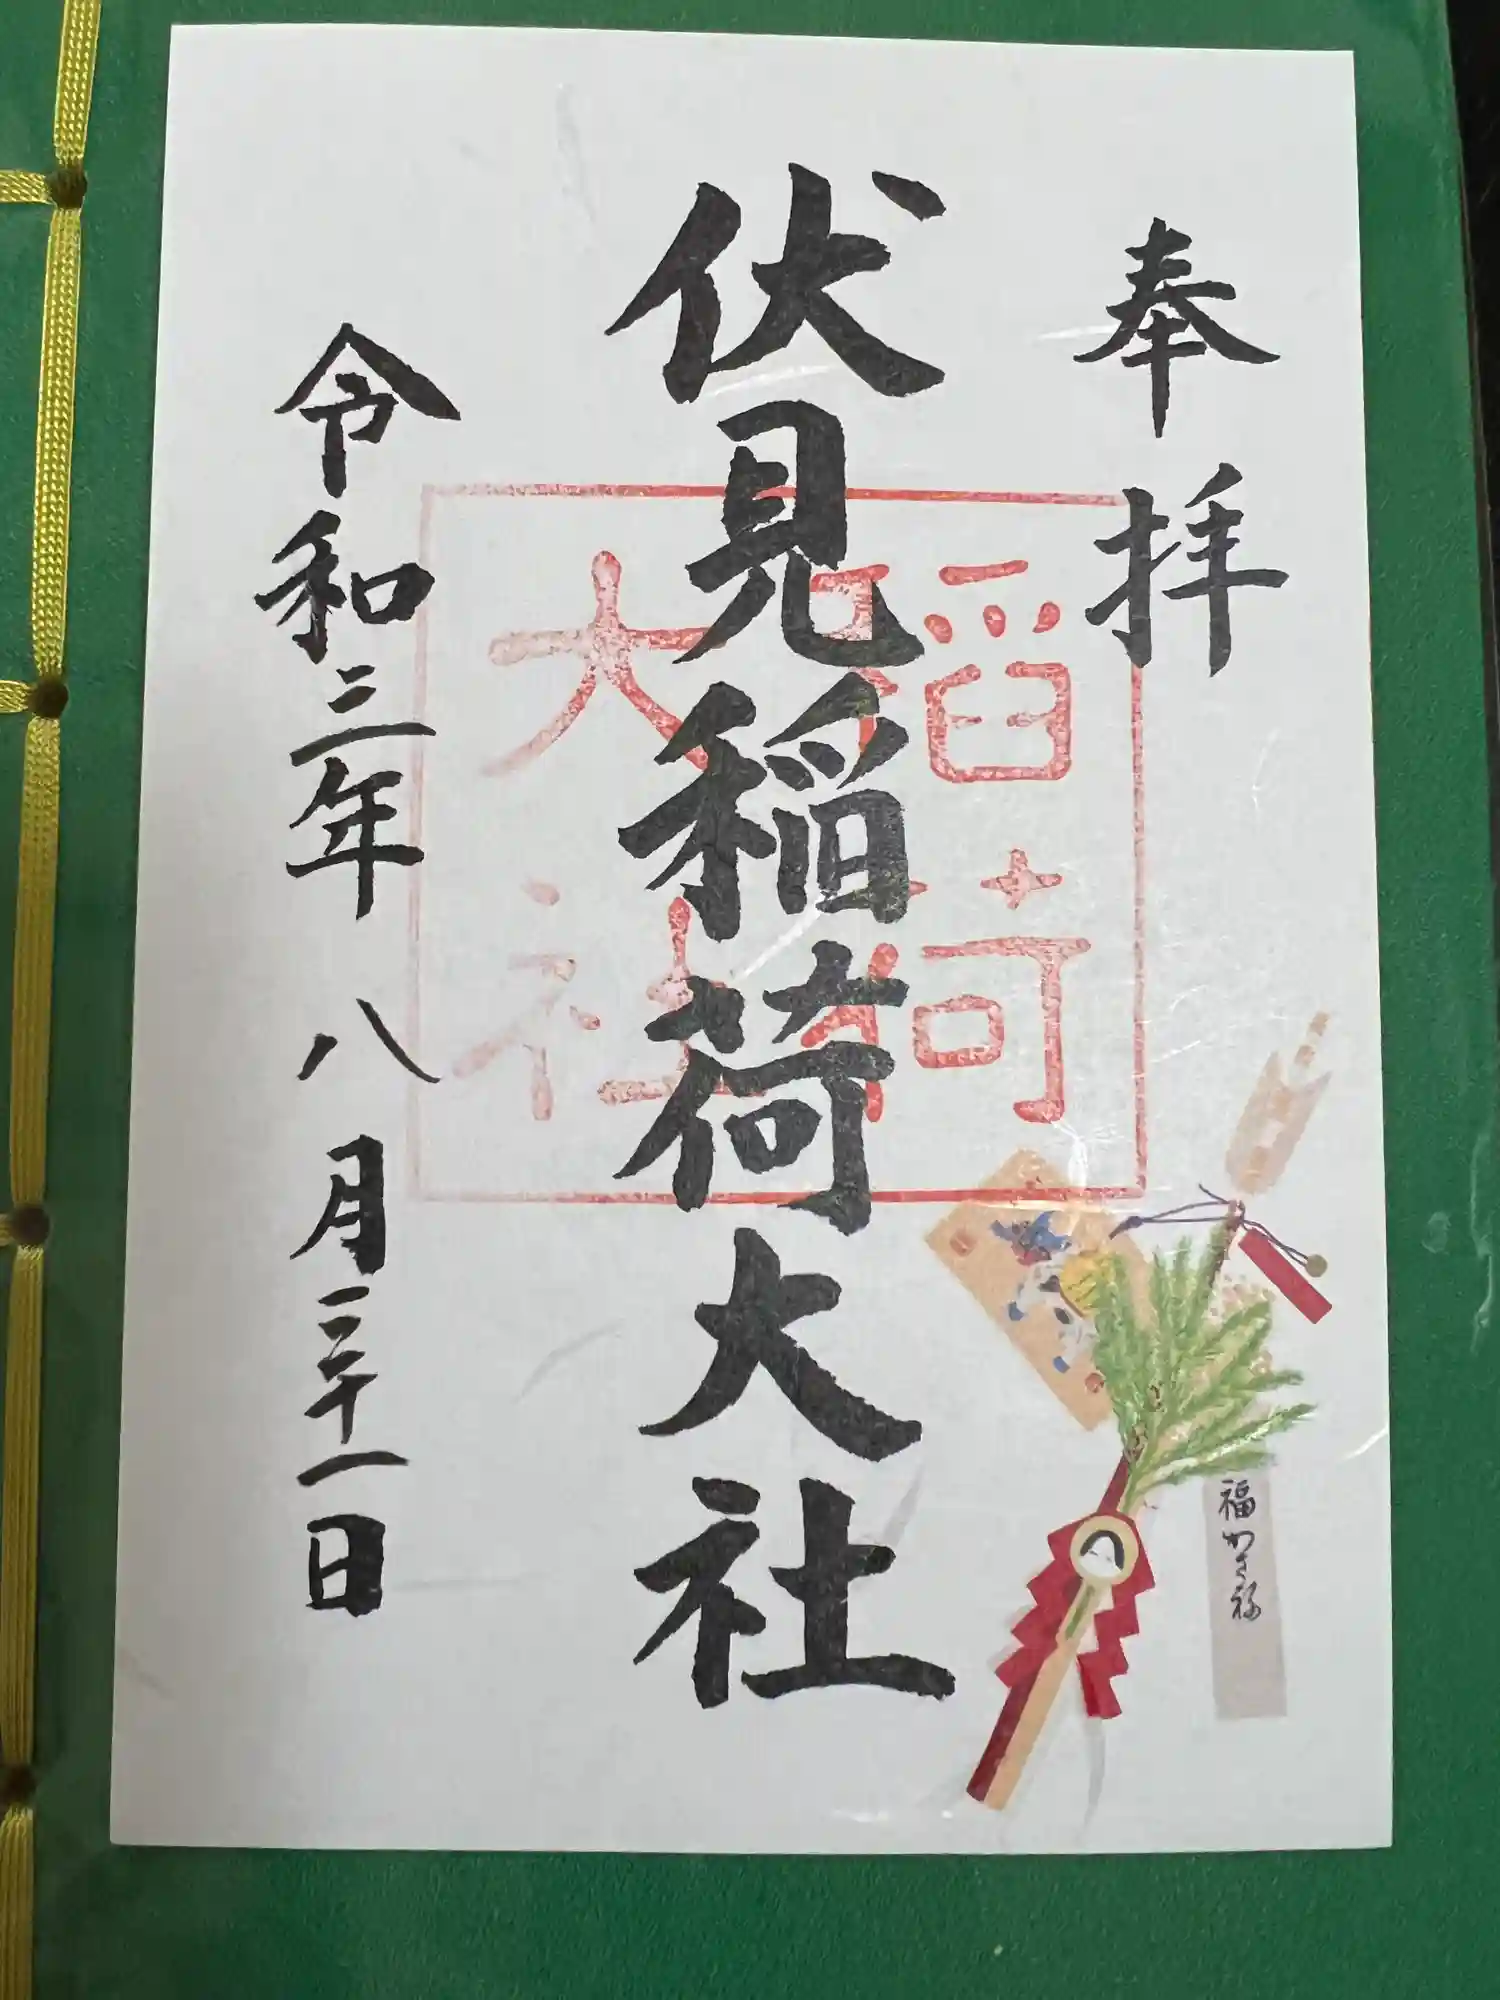 奉拝
伏見稲荷大社
稲荷
大社
令和三年八月三十一日
福かさ